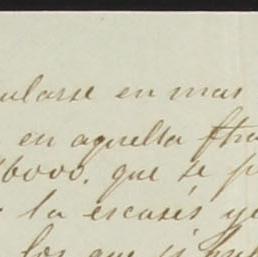 ularse en mas
en aquella
6000. que se
la escasés y
los que